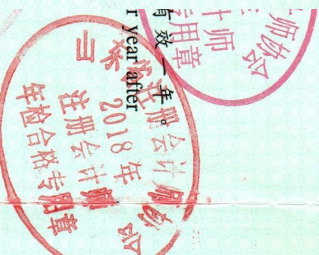 师协会
计师
专用章
有效一年。
r year after
注册会计师协会
2018年
注册会计师
年检合格专用章